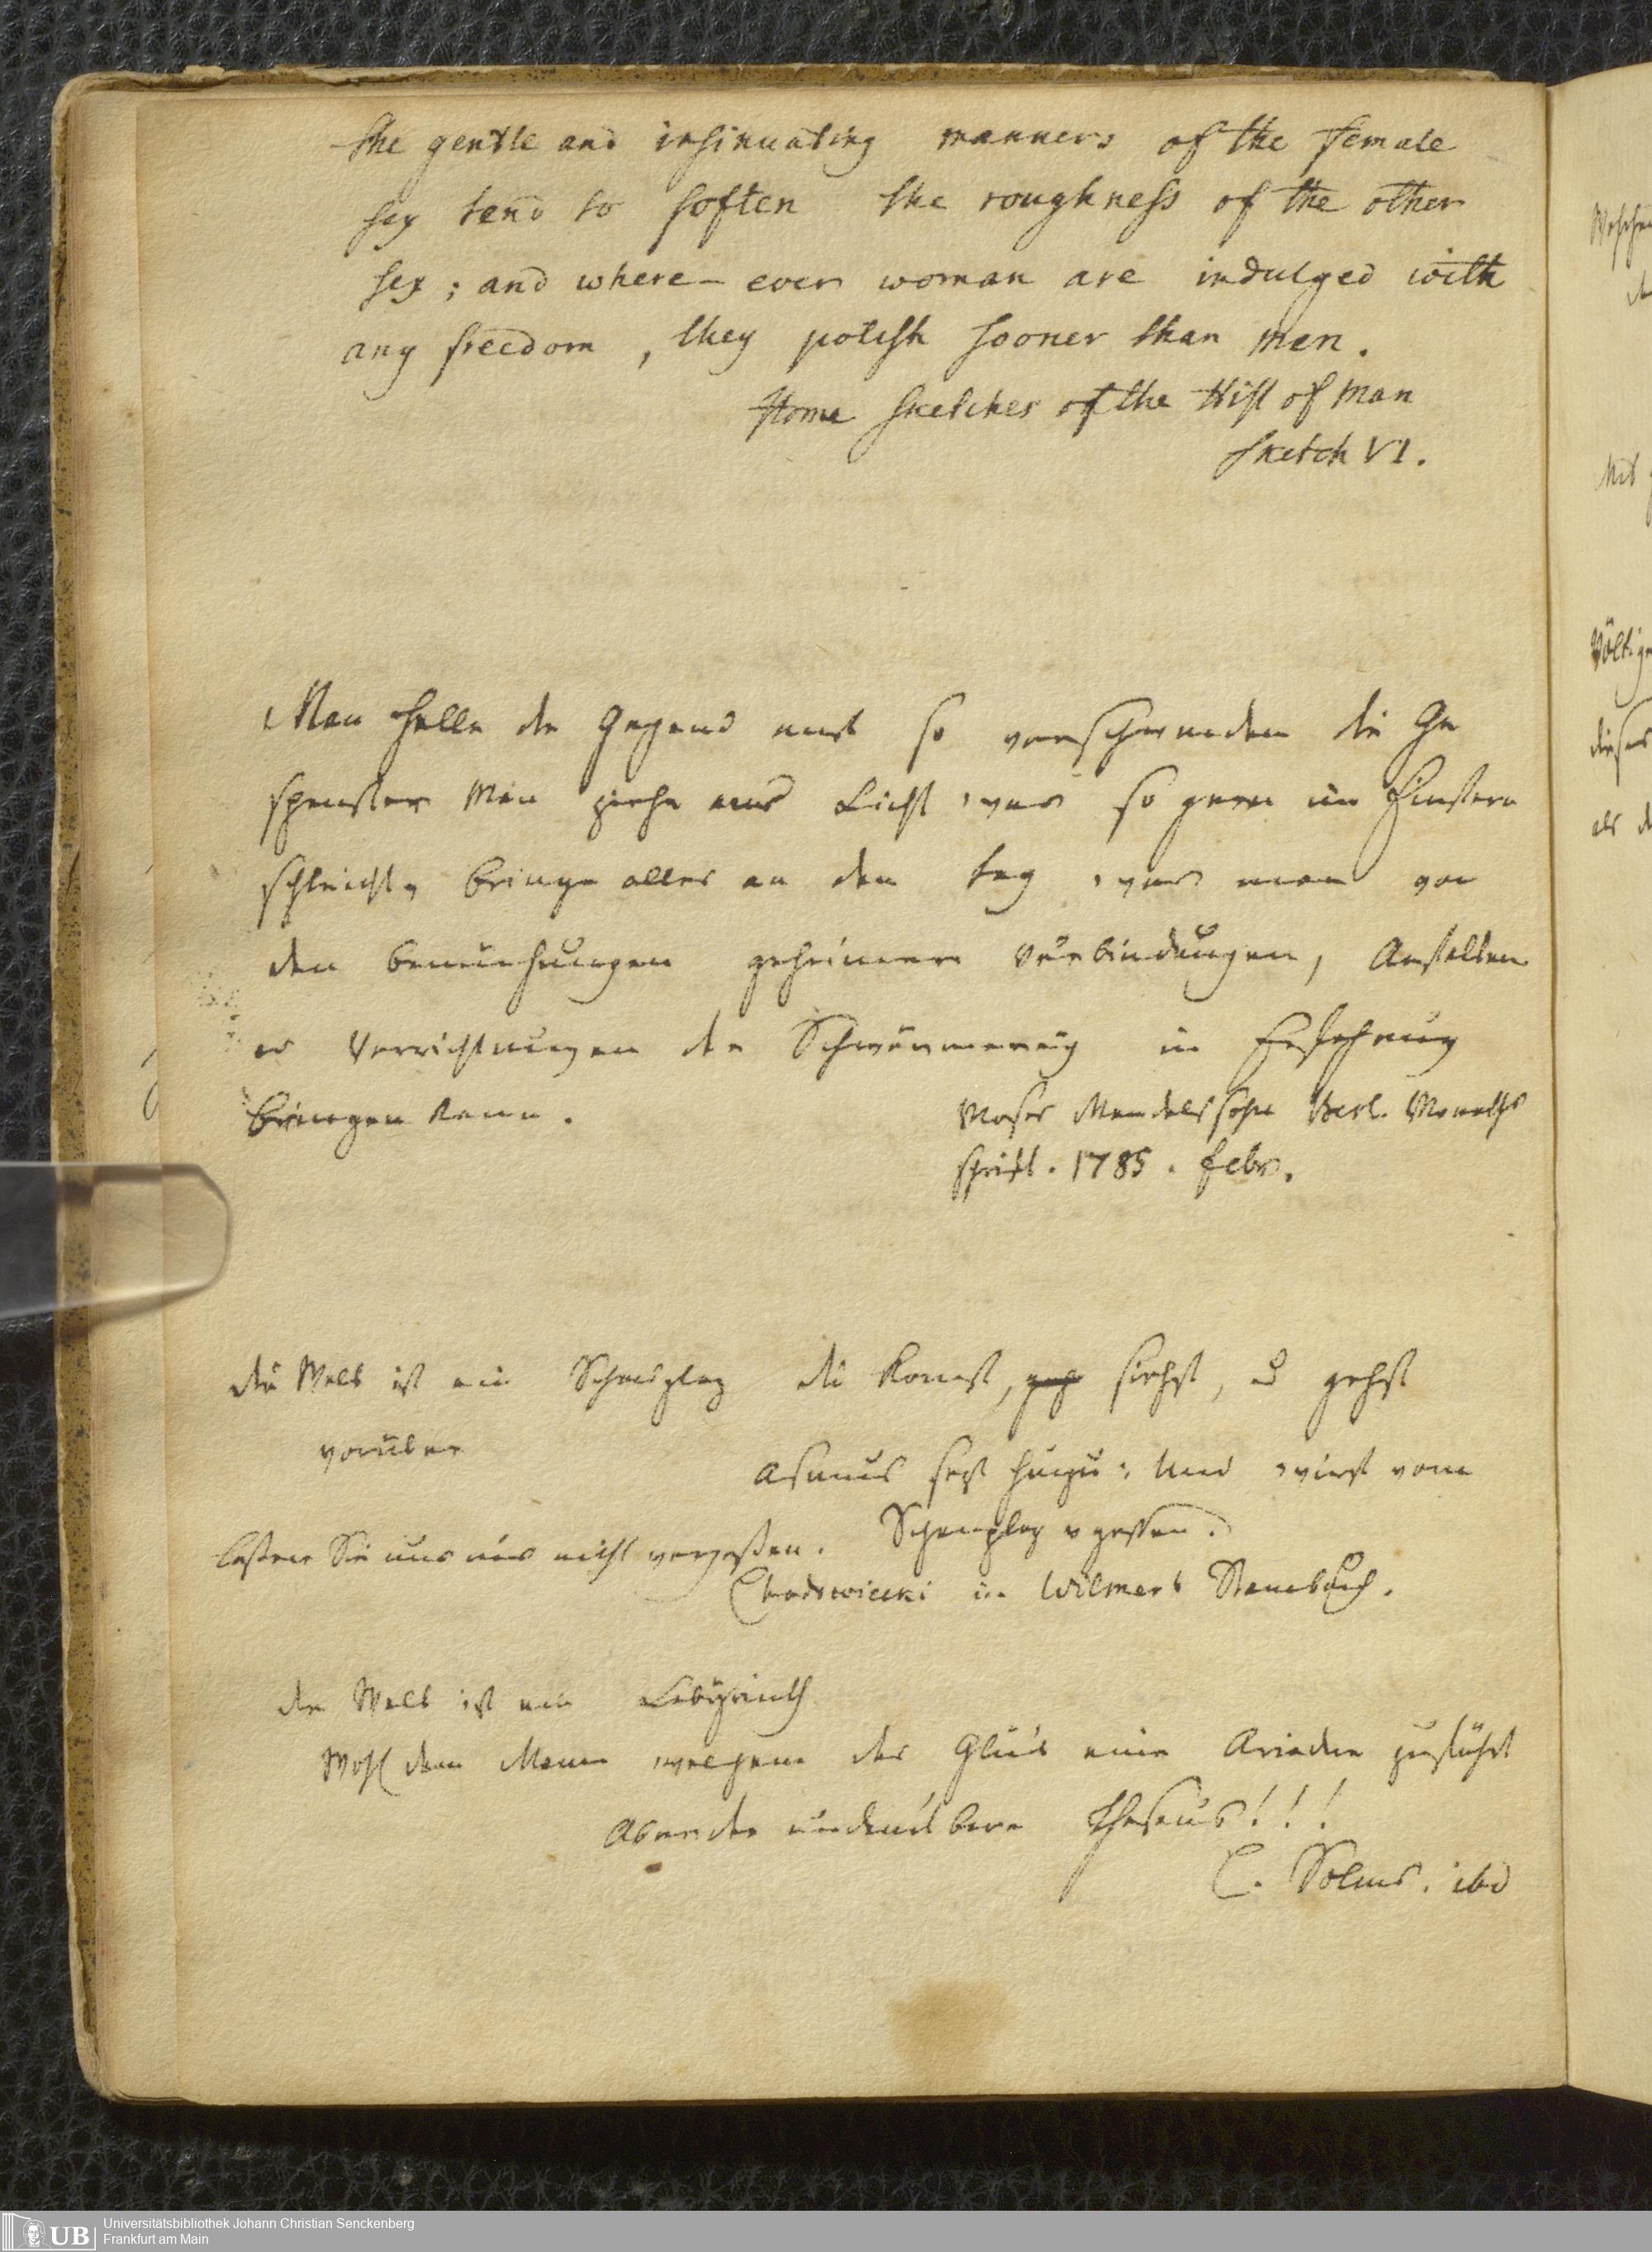 the gentle and insinuating manners of the female
sex tend to soften the roughness of the other
sex; and where-ever woman are indulged with
any freedom, they polish sooner than men.
Home Sketches of the Hist of Man
Sketch VI.
Man helle die Gegend auf so verschwinden die Ge
spenster Man ziehe ans Licht was so gern im Finstern
schleicht, bringe alles an den Tag was man von
den Bemühungen geheimer Verbindungen, Anstalten
u Verrichtungen der Schwärmerey in Erfahrung
bringen kann.
Moses Mendelssohn Berl. Monaths
schrift. 1785. Febr.
die Welt ist ein Schauplaz du komst, siehst, u gehst
vorüber
Asmus sezt hinzu: Und wirst vom
Schauplaz vgessen.
laßen Sie uns nicht vergeßen.
Chodowiecki in Wilmers Stambuch.
die Welt ist ein Labyrinth
Wohl dem Mann welchem das Glük eine Ariadne zuführt
Aber der undankbare Theseus!!!
C. Solms. ibid
Universitätsbibliothek Johann Christian Senckenberg
Frankfurt am Main
UB